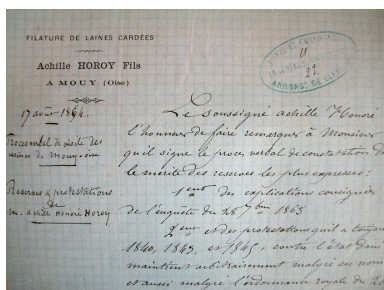 FILATURE DE LAINES CARDÉES
Achille HOROY Fils
A MOUY (Oise)
17 août 1864.
Procès verbal de visite des
usines de Mouy
Réserves & protestations
de
M. Achille Honoré Horoy
Le soussigné achille Honoré
l'honneur de faire remarquer à Monsieur
qu'il signe le procès verbal de constatation
le mérite des réserves les plus expresses:
1ent des explications consignées
de l'enquête du 28 1863
2ent et des protestations qu'il a toujours
1840, 1843, et 1845, contre l'état dans
maintient arbitrairement malgré
et aussi malgré l'ordonnance royale du